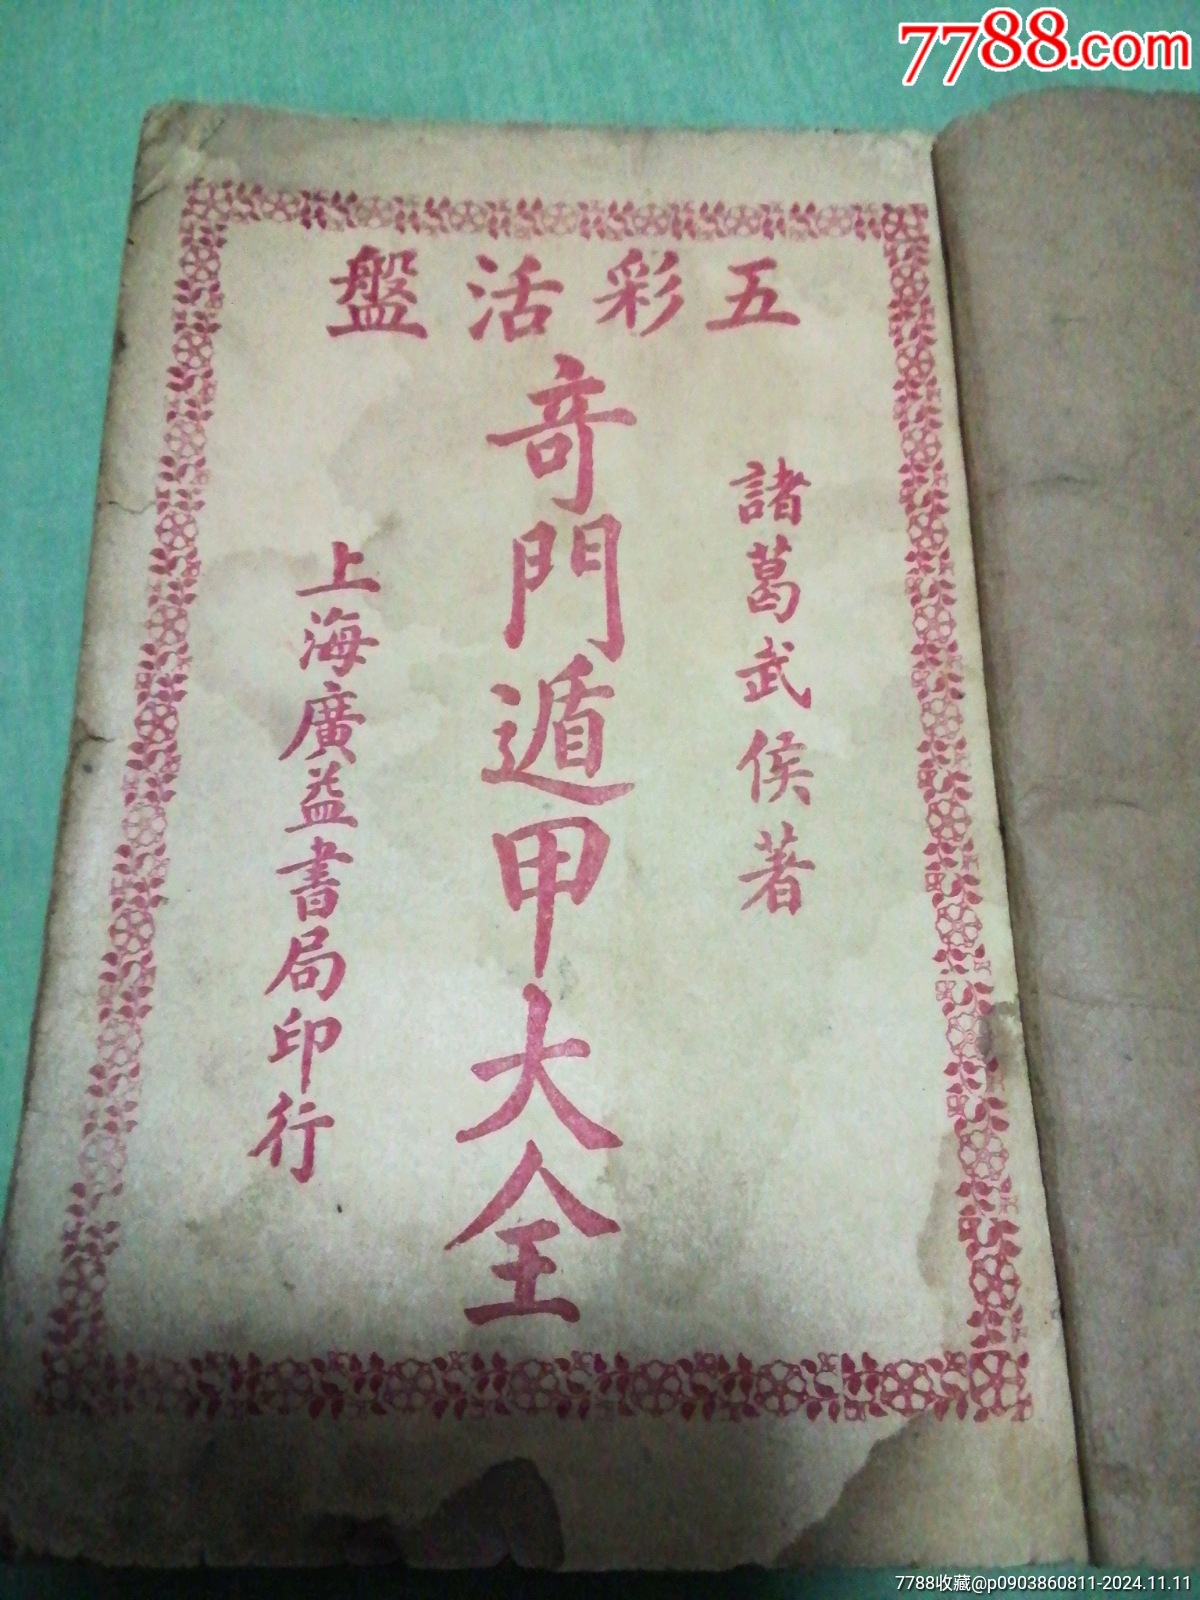 7788.com
五彩活盤
諸葛武侯著
奇門遁甲大全
上海廣益書局印行
7788收藏@p0903860811-2024.11.11